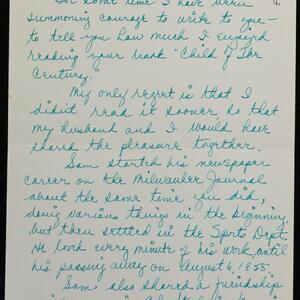 For some time I have been
summoning courage to write to you —
to tell you how much I enjoyed
reading your book "Child of The
Century."
My only regret is that I
didn't read it sooner so that
my husband and I would have
shared the pleasure together.
Sam started his newspaper
career on the Milwaukee Journal
about the same time you did,
doing various things in the beginning
but then settled in the Sports Dept.
He loved every minute of his work until
his passing away on August 6, 1955.
Sam also shared a friendship